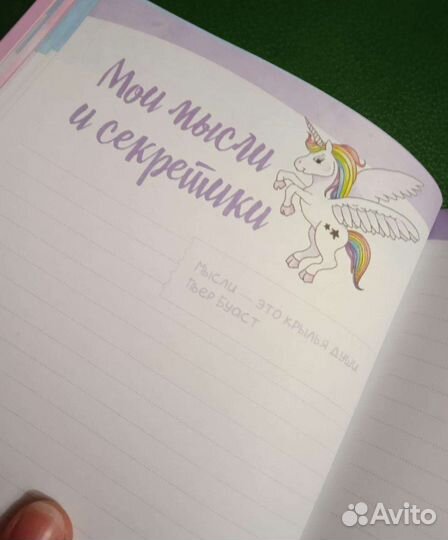 Мои мысли
и секретики
Мысли это крылья души
Пьер Буаст
Avito